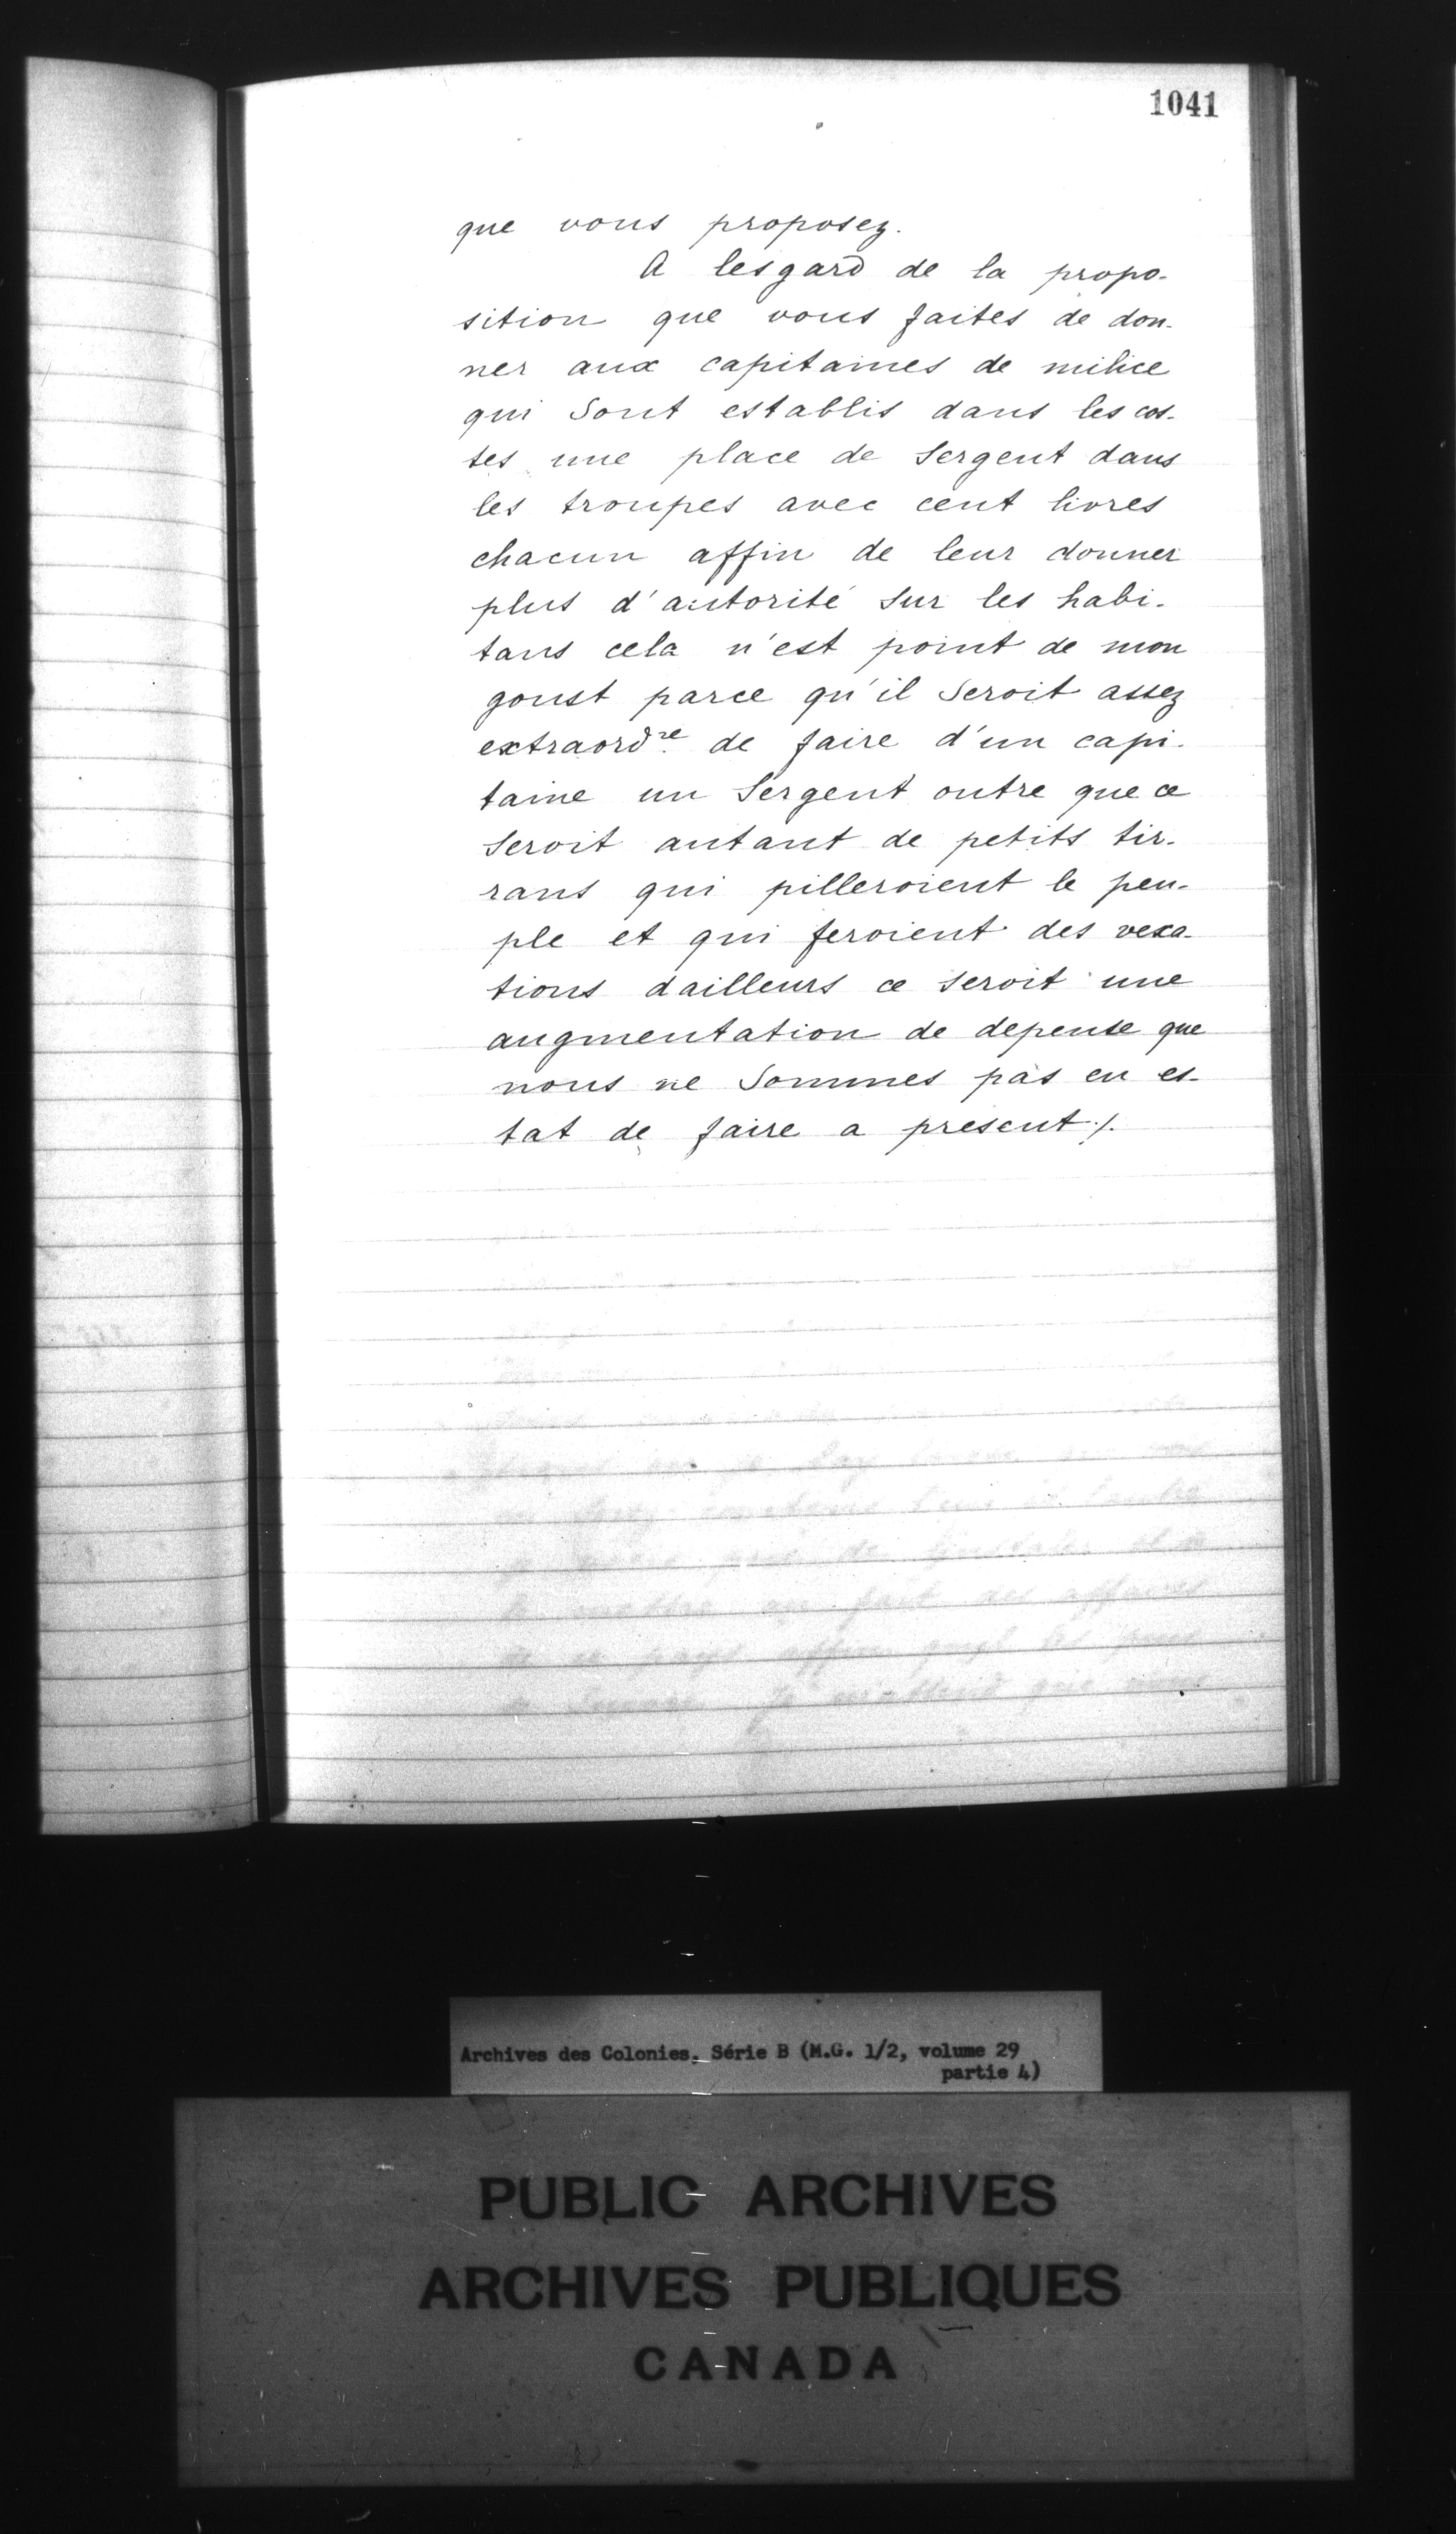 1041
que vous proposez.
A lesgard de la propo-
sition que vous faites de don-
ner aux capitaines de milice
qui sont establis dans les cos-
tes une place de sergent dans
les troupes avec cent livres
chacun affin de leur donner
plus d'autorité sur les habi-
tans cela n'est point de mon
goust parce qu'il seroit assez
extraord.re de faire d'un capi-
taine un sergent outre que ce
seroit autant de petits tir-
rans qui pilleroient le peu-
ple et qui feroient des vexa-
tions dailleurs ce seroit une
augmentation de depense que
nous ne sommes pas en es-
tat de faire a present ./.
Archives des Colonies, Série B (M.G. 1/2, volume 29
partie 4)
PUBLIC ARCHIVES
ARCHIVES PUBLIQUES
CANADA